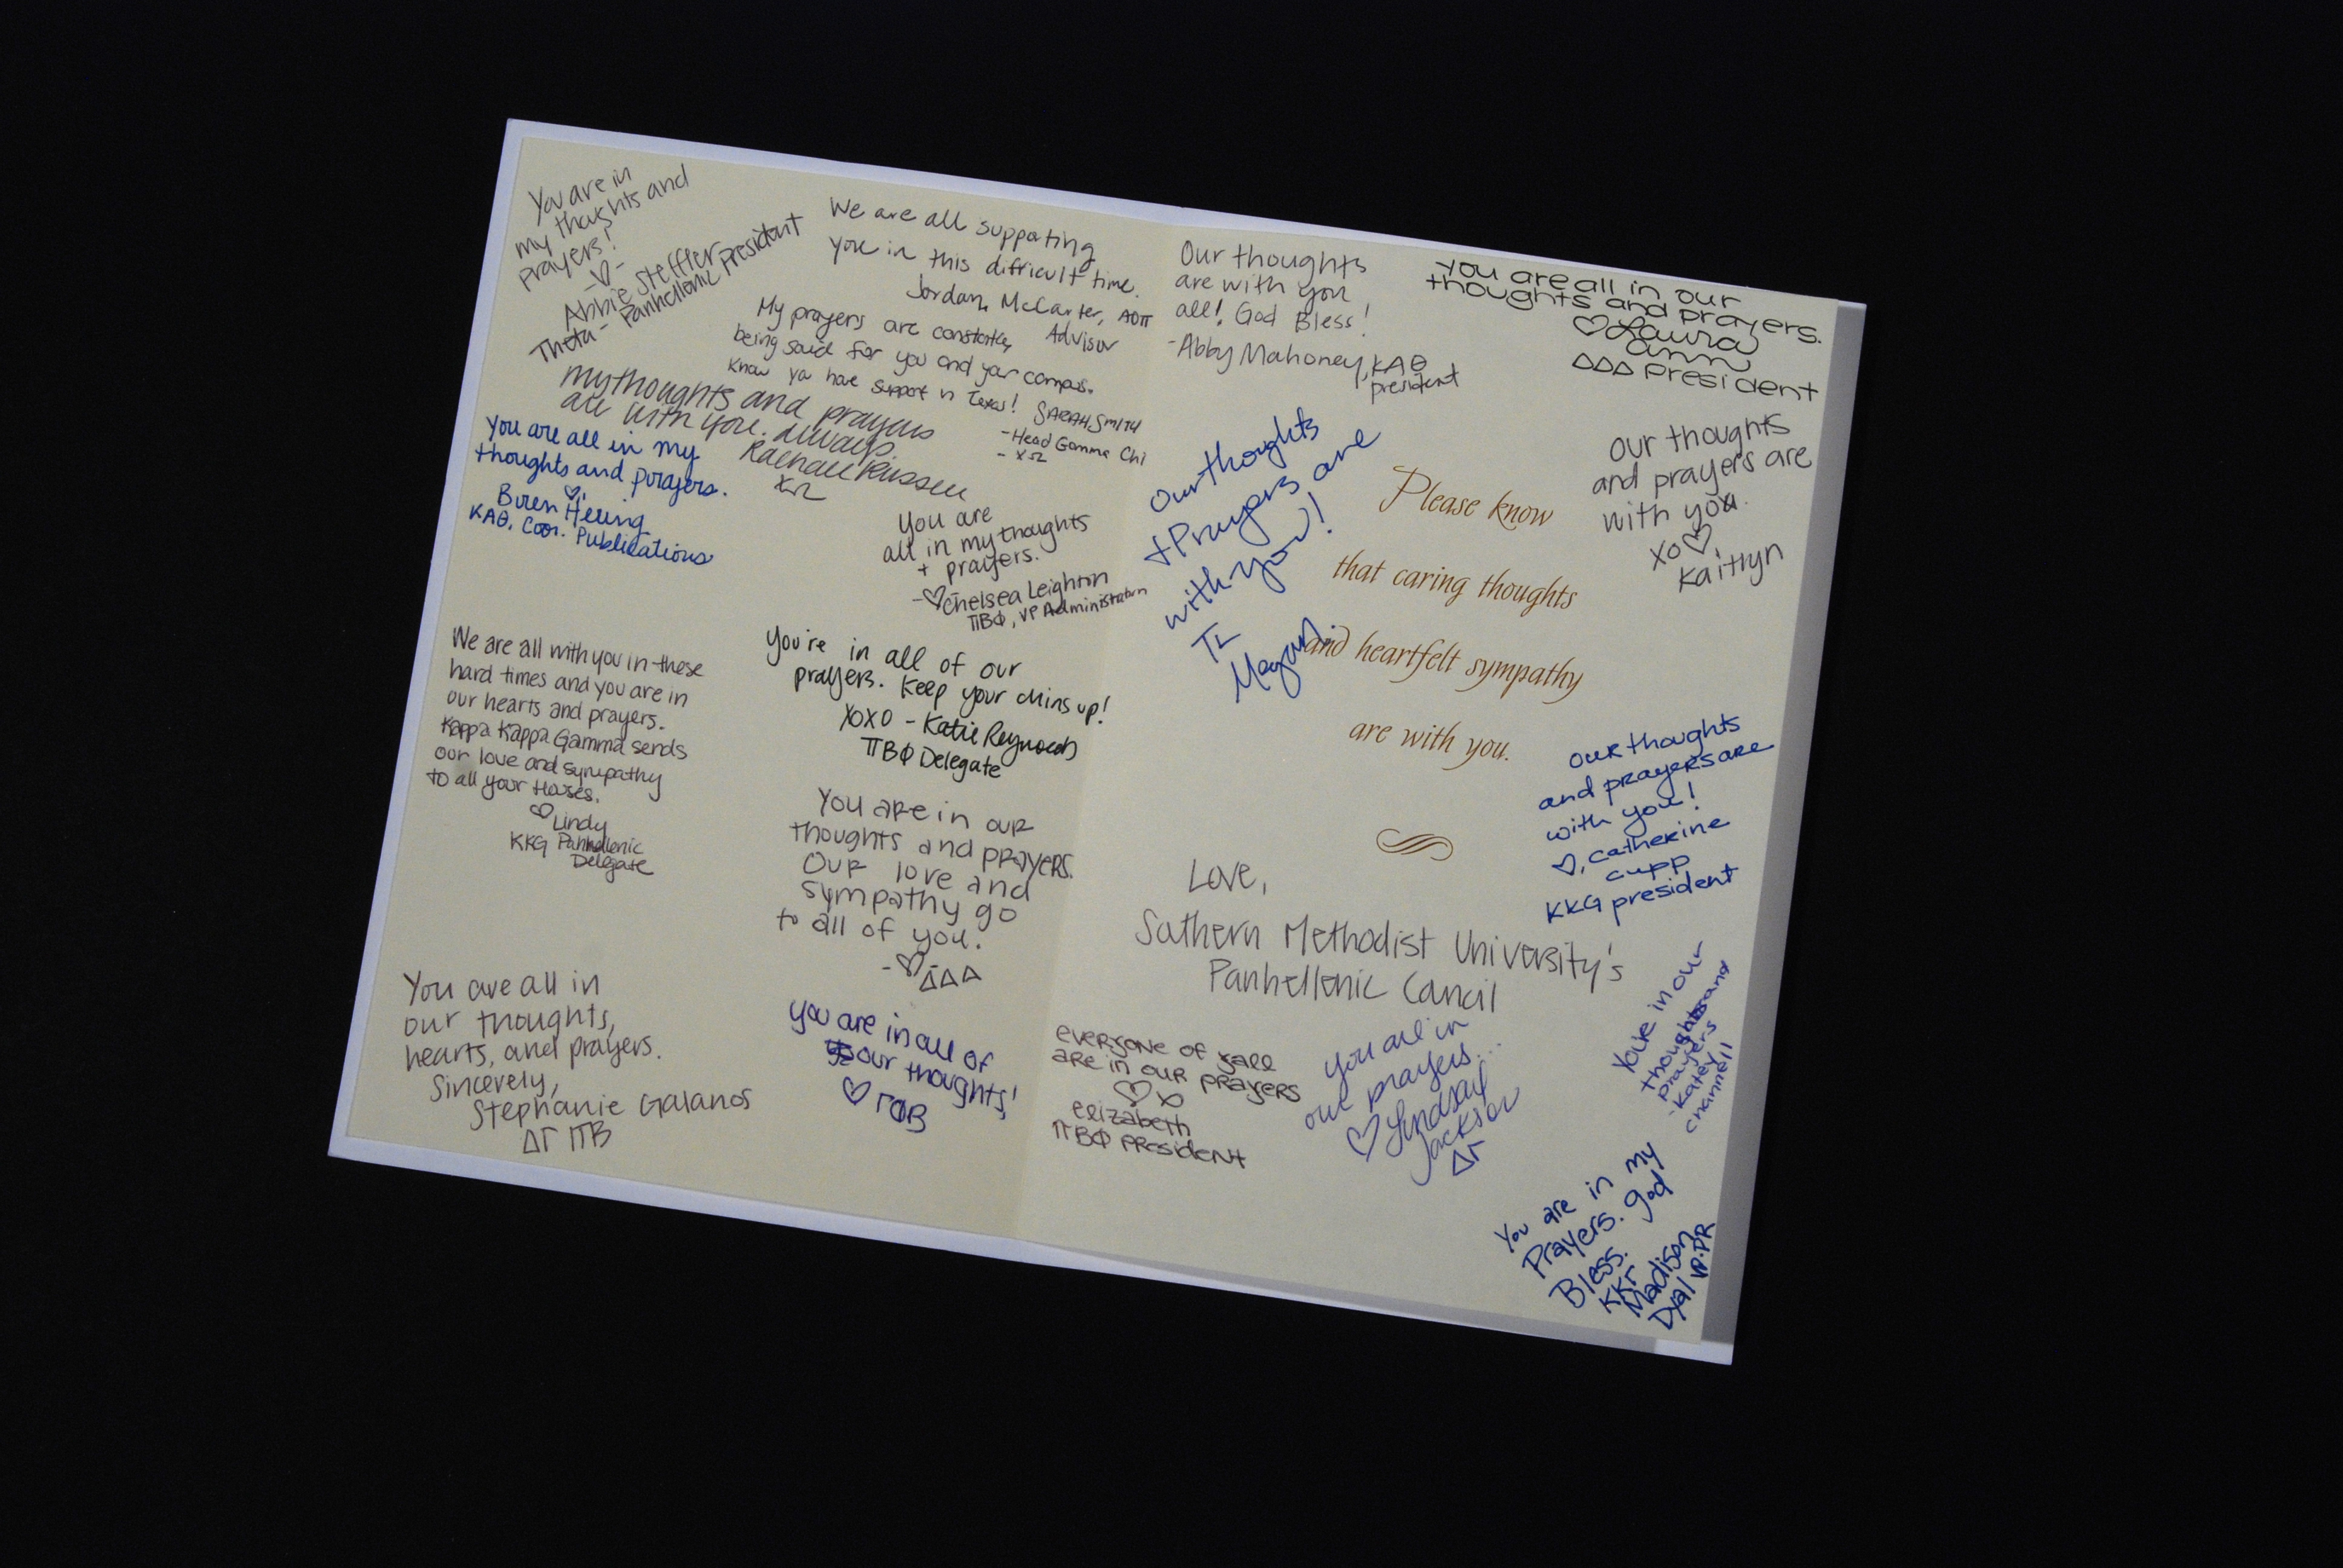 You are in
my thoughts and
prayers!
-♡-
Abbie Steffler
Theta- Panhellonic president
We are all supporting
you in this difficult time.
Jordan McCarter, AOΠ
Advisor
My prayers are constantly
being said for you and your campus.
Know you have support in Texas! SARAH SMITH
- Head Gamma Chi
- XΩ
my thoughts and prayers
are with you. always.
Rachael Russell
XΩ
You are all in my
thoughts and prayers.
♡,
KAΘ, Coor. Publications
You are
all in my thoughts
+ prayers.
-♡ Chelsea Leighton
ΠBΦ, VP Administration
We are all with you in these
hard times and you are in
our hearts and prayers.
Kappa Kappa Gamma sends
our love and sympathy
to all your Houses.
♡ Lindy
KKG Panhellenic
Delegate
You're in all of our
prayers. Keep your chins up!
XOXO - Katie Reynolds
ΠBΦ Delegate
You are in our
thoughts and prayers.
Our love and
sympathy go
to all of you.
-♡- ΔΔΔ
You are all in
our thoughts,
hearts, and prayers.
Sincerely,
Stephanie Galanos
ΔΓ ΠB
you are in all of
our thoughts!
♡ ΓΦB
Our thoughts
are with you
all! God Bless!
-Abby Mahoney, KAΘ
president
you are all in our
thoughts and prayers.
♡ Laura
ann
ΔΔΔ president
Our thoughts
+ Prayers are
with you!
Megan
our thoughts
and prayers are
with you.
XO ♡,
Kaitlyn
Please know
that caring thoughts
and heartfelt sympathy
are with you.
our thoughts
and prayers are
with you!
♡, Catherine
Cupp
KKG president
Love,
Southern Methodist University's
Panhellenic Council
everyone of yall
are in our prayers
♡ xo
elizabeth
ΠBΦ president
You are in
our prayers...
♡ Lindsay
Jackson
ΔΓ
You're in our
thoughts and
prayers
-Katey
Channell
You are in my
Prayers. God
Bless.
KKΓ
Madison
Dyal VP.PR